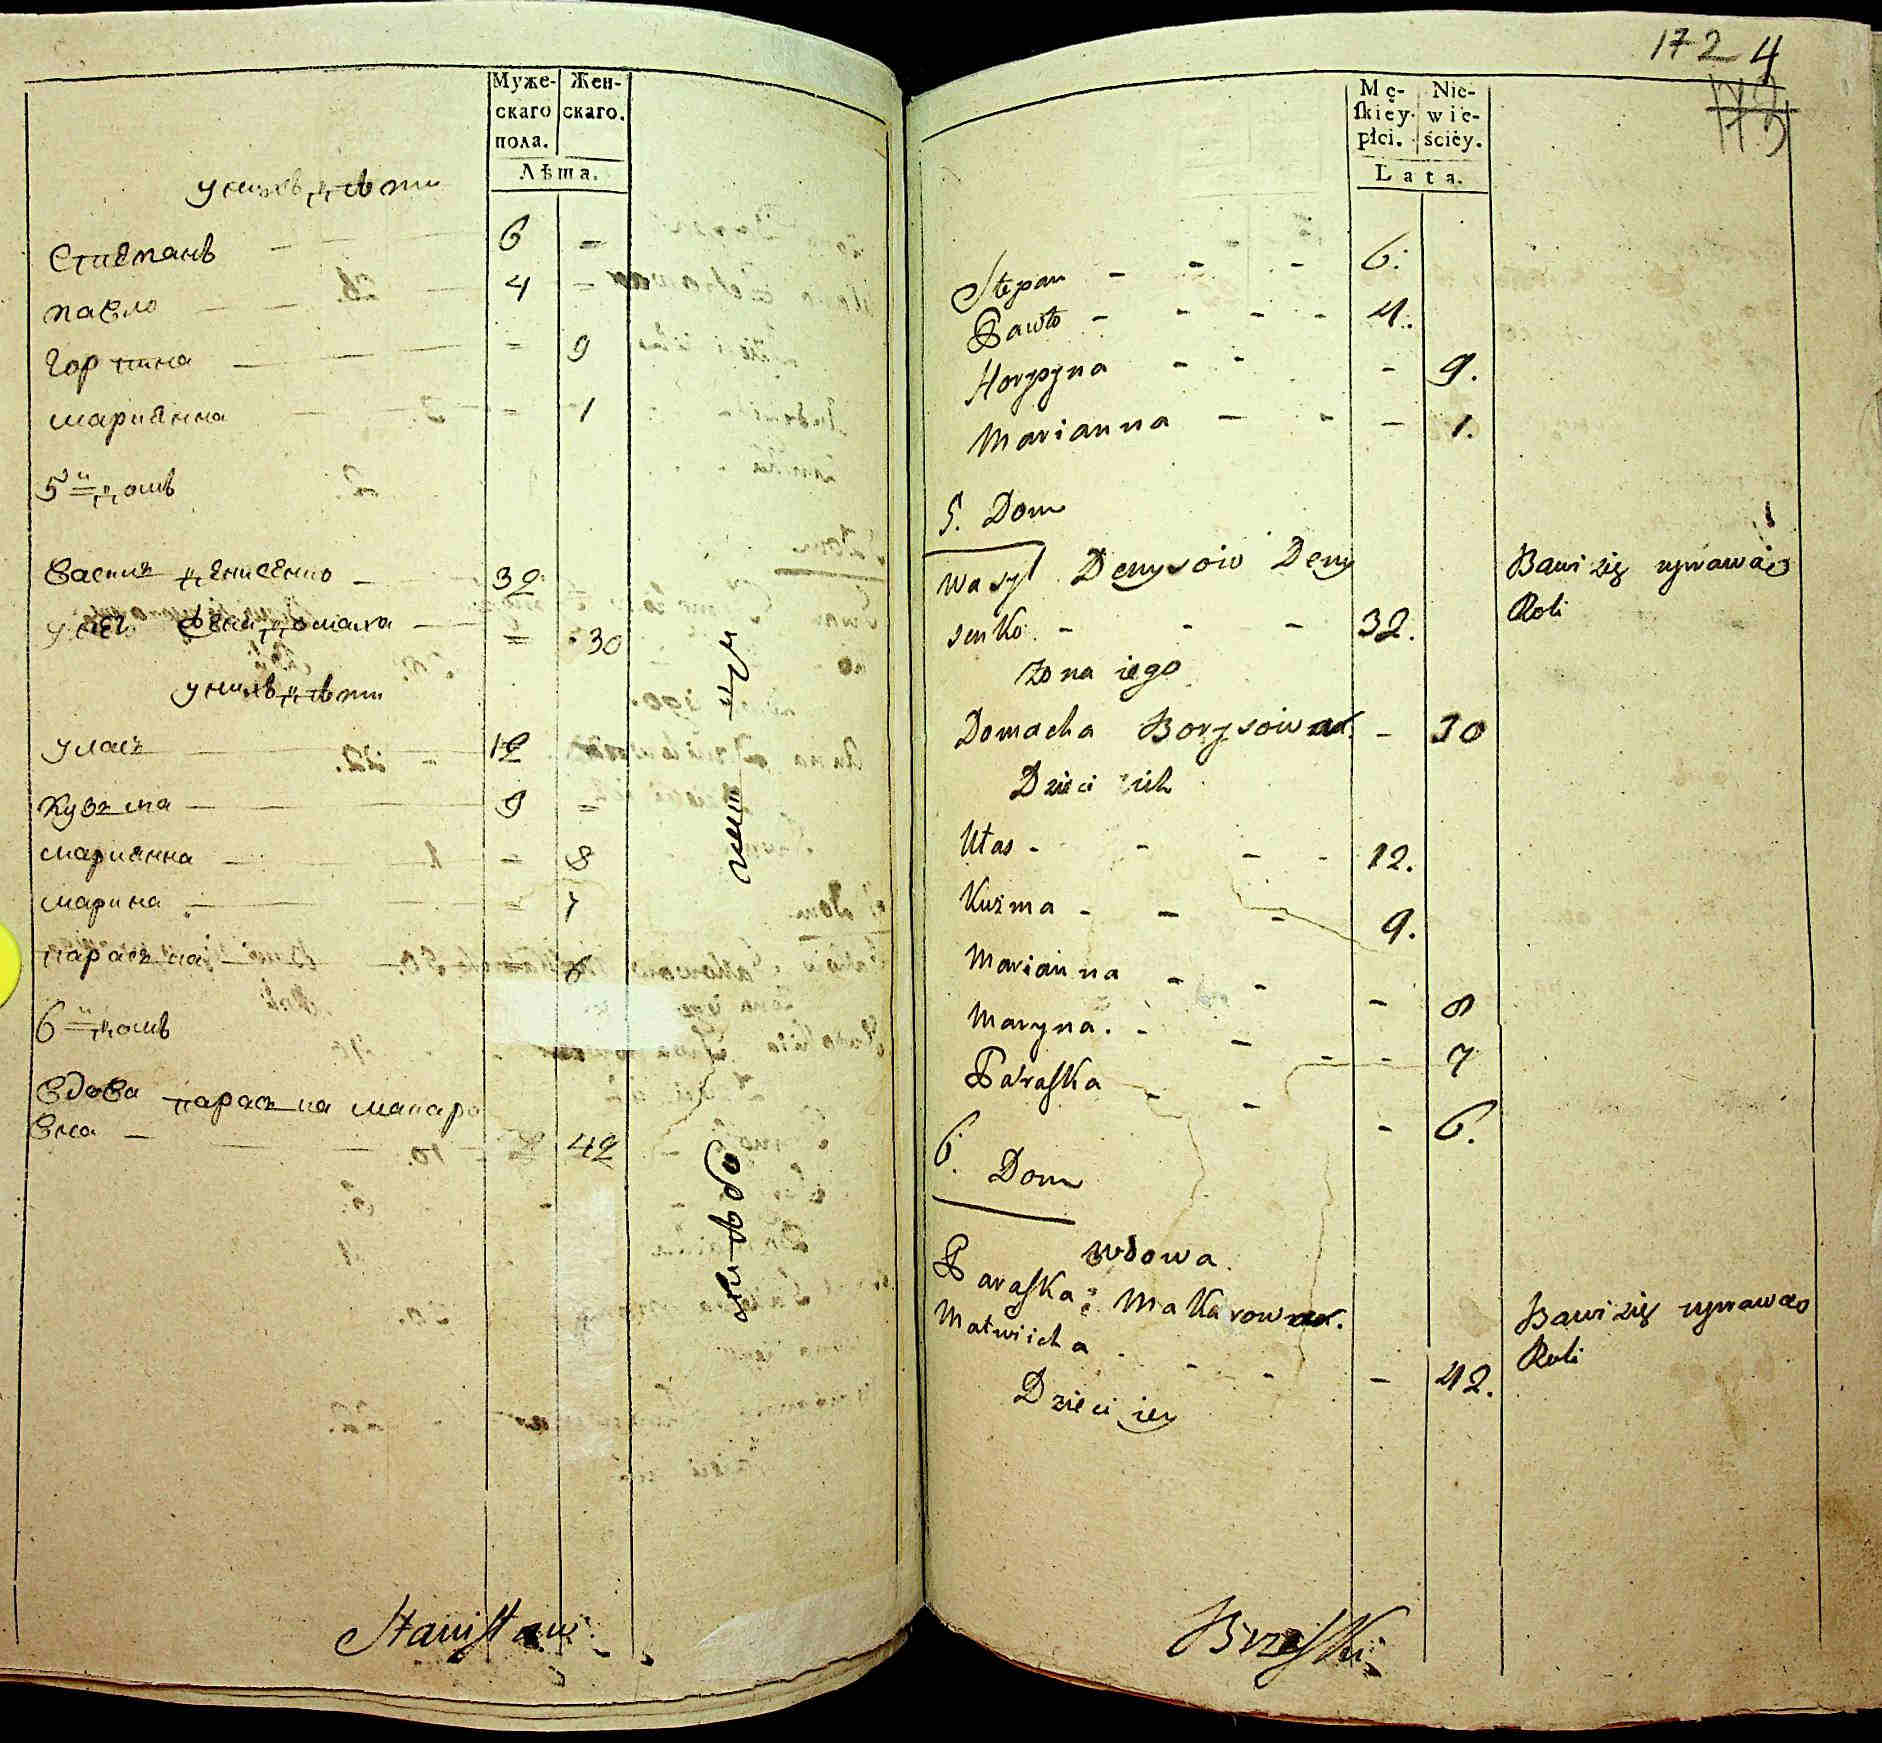 Муже- Жен-
скаго скаго.
пола.
Лѣта.
у нихъ дѣти
Стиепанъ — 6 =
павло — 4 =
горпина — = 9
мариянна — = 1
5й домъ
василь денисенко — 32
у него жена домаха — = 30
у нихъ дѣти
уласъ — 12
кузьма — 9 =
мариянна — = 8
марина — = 7
параска — = 6
6й домъ
вдова параска макаро
вна — 42
Stanisław
172 4
173
Mę- Nie-
skiey wie-
płci. ściéy.
Lata.
Stepan - - - 6.
Pawło - - - - 4.
Horpyna - - - 9.
Marianna - - - 1.
5. Dom
Wasyl Denysow Deny
senko - - - 32.
Bawi się uprawą
Roli
Żona iego
Domacha Borysowna. - 30
Dzieci ich
Ułas - - - - 12.
Kuźma - - - 9.
Marianna - - - 8
Maryna. - - - - 7
Paraska - - - 6.
6. Dom
Wdowa
Paraska Makarowna.
Matwiicha - - - - 42.
Bawi się uprawą
Roli
Dzieci iey
Brzeski